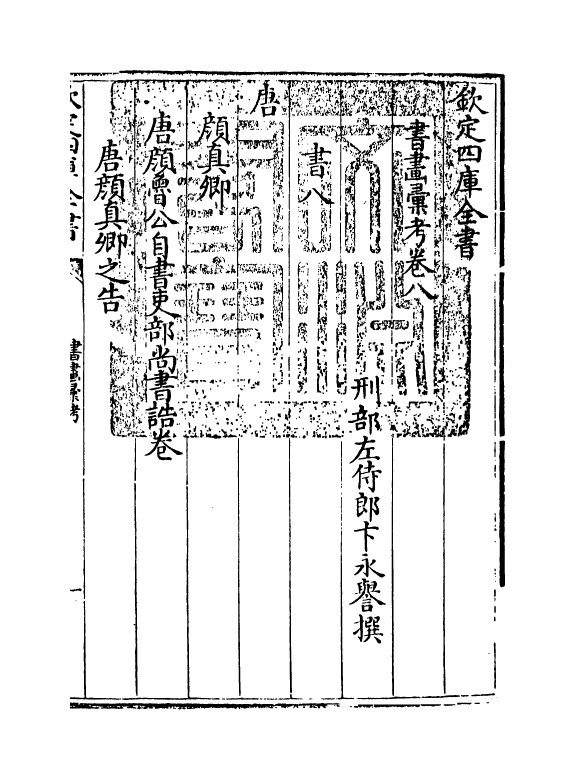 欽定四庫全書
書畫彙考卷八
刑部左侍郎卞永譽撰
書八
唐
顏真卿
唐顏魯公自書吏部尚書誥卷
唐顏真卿之告
欽定四庫全書
書畫彙考
一